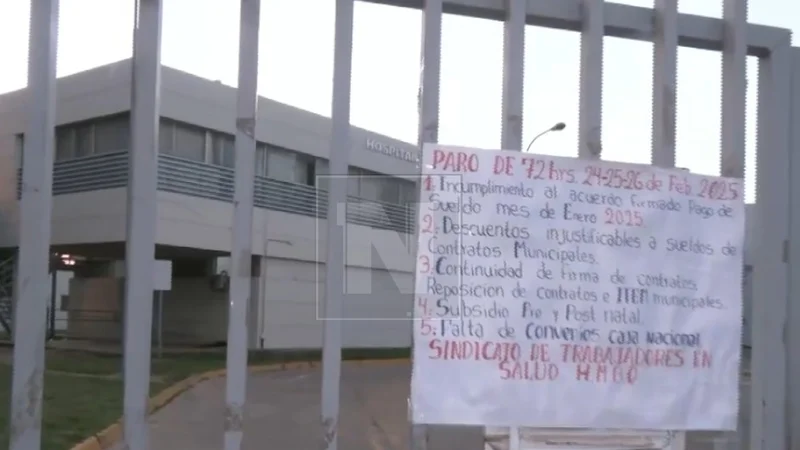 HOSPITAL
PARO DE 72 hrs. 24-25-26 de Feb 2025
1. Incumplimiento al acuerdo firmado Pago de
Sueldo mes de Enero 2025.
2. Descuentos injustificables a sueldos de
Contratos Municipales.
3. Continuidad de firma de contratos,
Reposicion de contratos e ITEM municipales.
4. Subsidio Pre y Post natal.
5. Falta de convenios caja Nacional
SINDICATO DE TRABAJADORES EN
SALUD
N